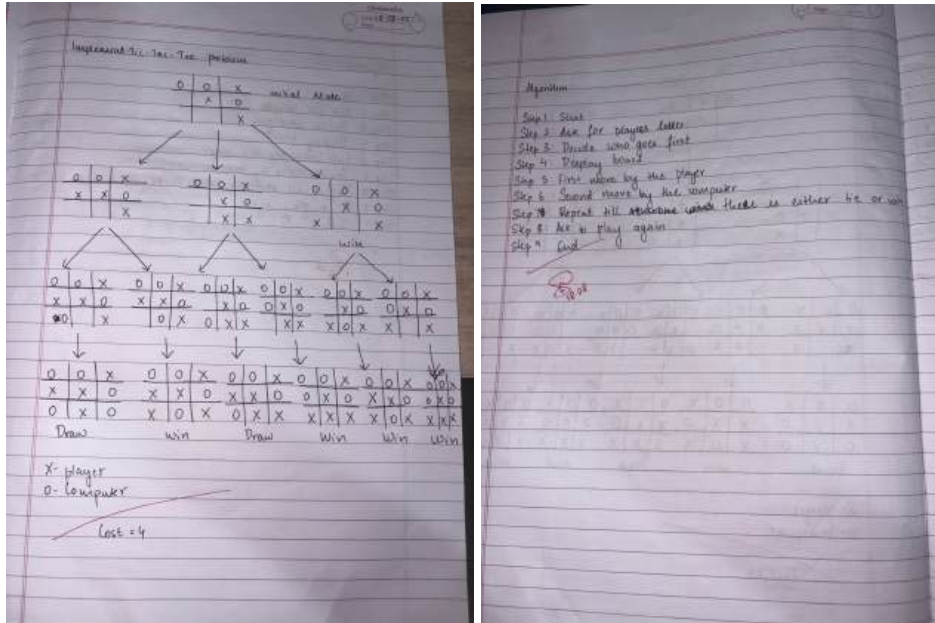 Implement Tic-Tac-Toe problem
O O X
X O initial state
X
O O X O O X O O X
X X O X O X O
X X X X X
Win
O O X O O X O O X O O X O O X O O X
X X O X X O X O O X O X O O X O
O X O X O X X X X X O X X X
O O X O O X O O X O O X O O X O O X
X X O X X O X X O O X O X X O O X O
O X O X O X O X X X X X X O X X X X
Draw Win Draw Win Win Win
X- player
O- Computer
Cost = 4
Algorithm
Step 1: Start
Step 2: Ask for players letter
Step 3: Decide who goes first
Step 4: Display board
Step 5: First move by the player
Step 6: Second move by the computer
Step 7: Repeat till there is either tie or win
Step 8: Ask to play again
Step 9: End